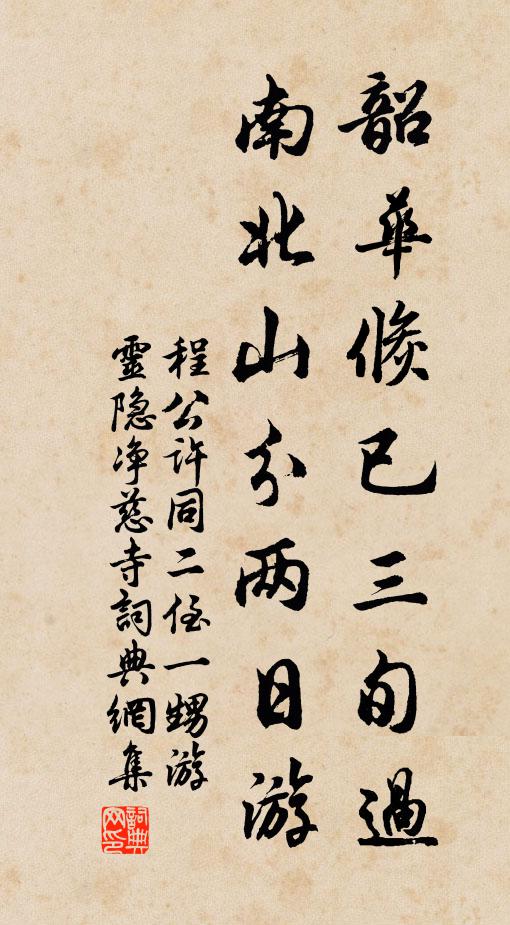 韶華倏已三旬過
南北山分两日游
程公许同二侄一甥游
靈隐净慈寺詞典網集
詞典网印